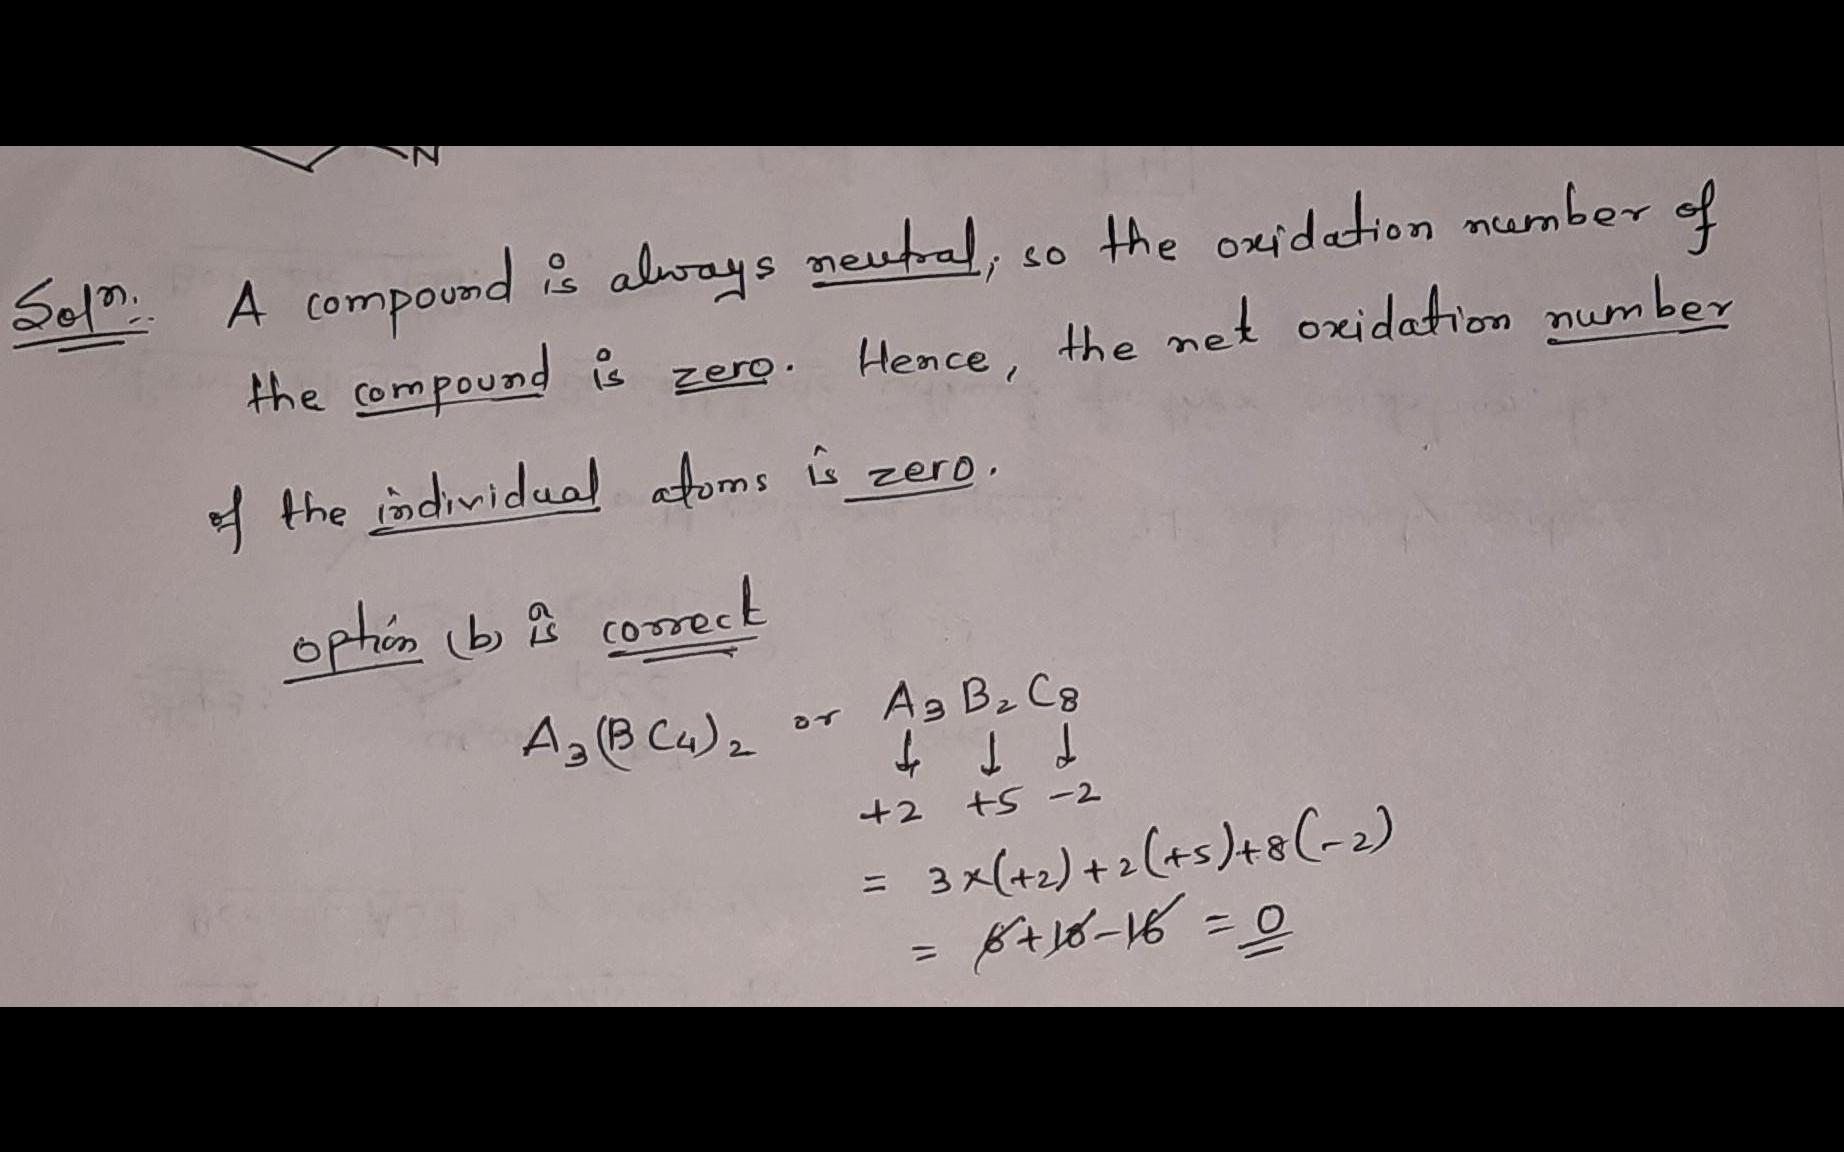 N
Soln:. A compound is always neutral, so the oxidation number of
the compound is zero. Hence, the net oxidation number
of the individual atoms is zero.
option (b) is correct
A₃(BC₄)₂ or A₃B₂C₈
↓ ↓ ↓
+2 +5 -2
= 3×(+2)+2(+5)+8(-2)
= 6+10-16 = 0